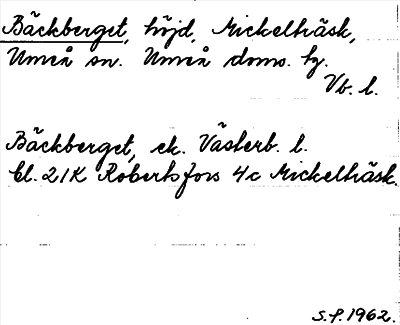 Bäckberget, höjd, Mickelträsk,
Umeå sn. Umeå doms. hg.
Vb. l.
Bäckberget, ek. Västerb. l.
bl. 21K Robertsfors 4c Mickelträsk.
S.F. 1962.